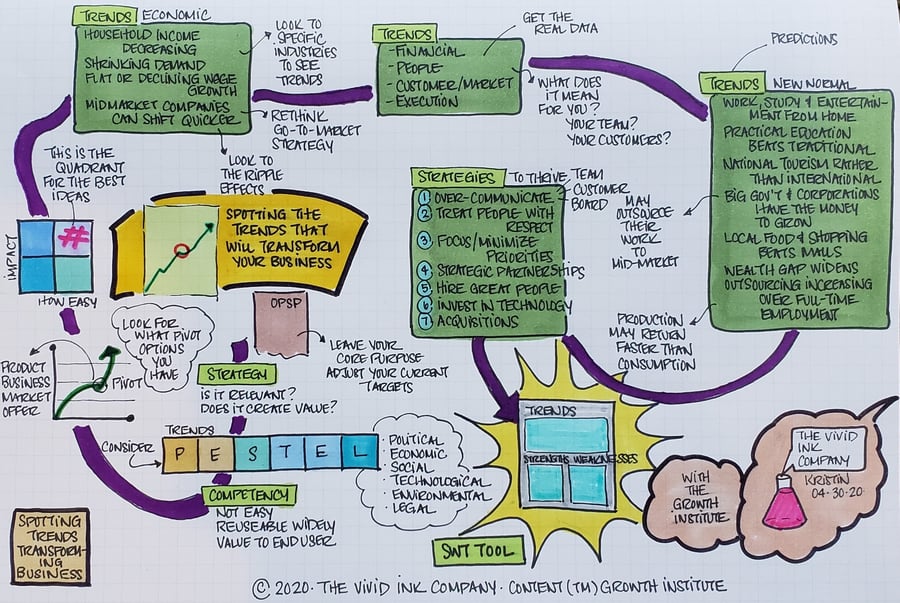 TRENDS ECONOMIC
HOUSEHOLD INCOME
DECREASING
SHRINKING DEMAND
FLAT OR DECLINING WAGE
GROWTH
MIDMARKET COMPANIES
CAN SHIFT QUICKER
LOOK TO
SPECIFIC
INDUSTRIES
TO SEE
TRENDS
RETHINK
GO-TO-MARKET
STRATEGY
LOOK TO
THE RIPPLE
EFFECTS
TRENDS
-FINANCIAL
-PEOPLE
-CUSTOMER/MARKET
-EXECUTION
GET THE
REAL DATA
WHAT DOES
IT MEAN
FOR YOU?
YOUR TEAM?
YOUR CUSTOMERS?
PREDICTIONS
TRENDS NEW NORMAL
WORK, STUDY & ENTERTAIN-
MENT FROM HOME
PRACTICAL EDUCATION
BEATS TRADITIONAL
NATIONAL TOURISM RATHER
THAN INTERNATIONAL
BIG GOV'T & CORPORATIONS
HAVE THE MONEY
TO GROW
LOCAL FOOD & SHOPPING
BEATS MALLS
WEALTH GAP WIDENS
OUTSOURCING INCREASING
OVER FULL-TIME
EMPLOYMENT
MAY
OUTSOURCE
THEIR
WORK
TO
MID-MARKET
PRODUCTION
MAY RETURN
FASTER THAN
CONSUMPTION
STRATEGIES TO THRIVE
1 OVER-COMMUNICATE
2 TREAT PEOPLE WITH
RESPECT
3 FOCUS/MINIMIZE
PRIORITIES
4 STRATEGIC PARTNERSHIPS
5 HIRE GREAT PEOPLE
6 INVEST IN TECHNOLOGY
7 ACQUISITIONS
TEAM
CUSTOMER
BOARD
THIS IS THE
QUADRANT
FOR THE BEST
IDEAS
#
IMPACT
HOW EASY
SPOTTING THE
TRENDS THAT
WILL TRANSFORM
YOUR BUSINESS
OPSP
LEAVE YOUR
CORE PURPOSE
ADJUST YOUR CURRENT
TARGETS
LOOK FOR
WHAT PIVOT
OPTIONS
YOU
HAVE
PRODUCT
BUSINESS
MARKET
OFFER
PIVOT
STRATEGY
IS IT RELEVANT?
DOES IT CREATE VALUE?
CONSIDER
TRENDS
P E S T E L
· POLITICAL
· ECONOMIC
· SOCIAL
· TECHNOLOGICAL
· ENVIRONMENTAL
· LEGAL
COMPETENCY
NOT EASY
REUSEABLE WIDELY
VALUE TO END USER
TRENDS
STRENGTHS WEAKNESSES
SWT TOOL
WITH
THE
GROWTH
INSTITUTE
THE VIVID
INK
COMPANY
KRISTIN
04·30·20
SPOTTING
TRENDS
TRANSFORM-
ING
BUSINESS
© 2020 · THE VIVID INK COMPANY · CONTENT (TM) GROWTH INSTITUTE